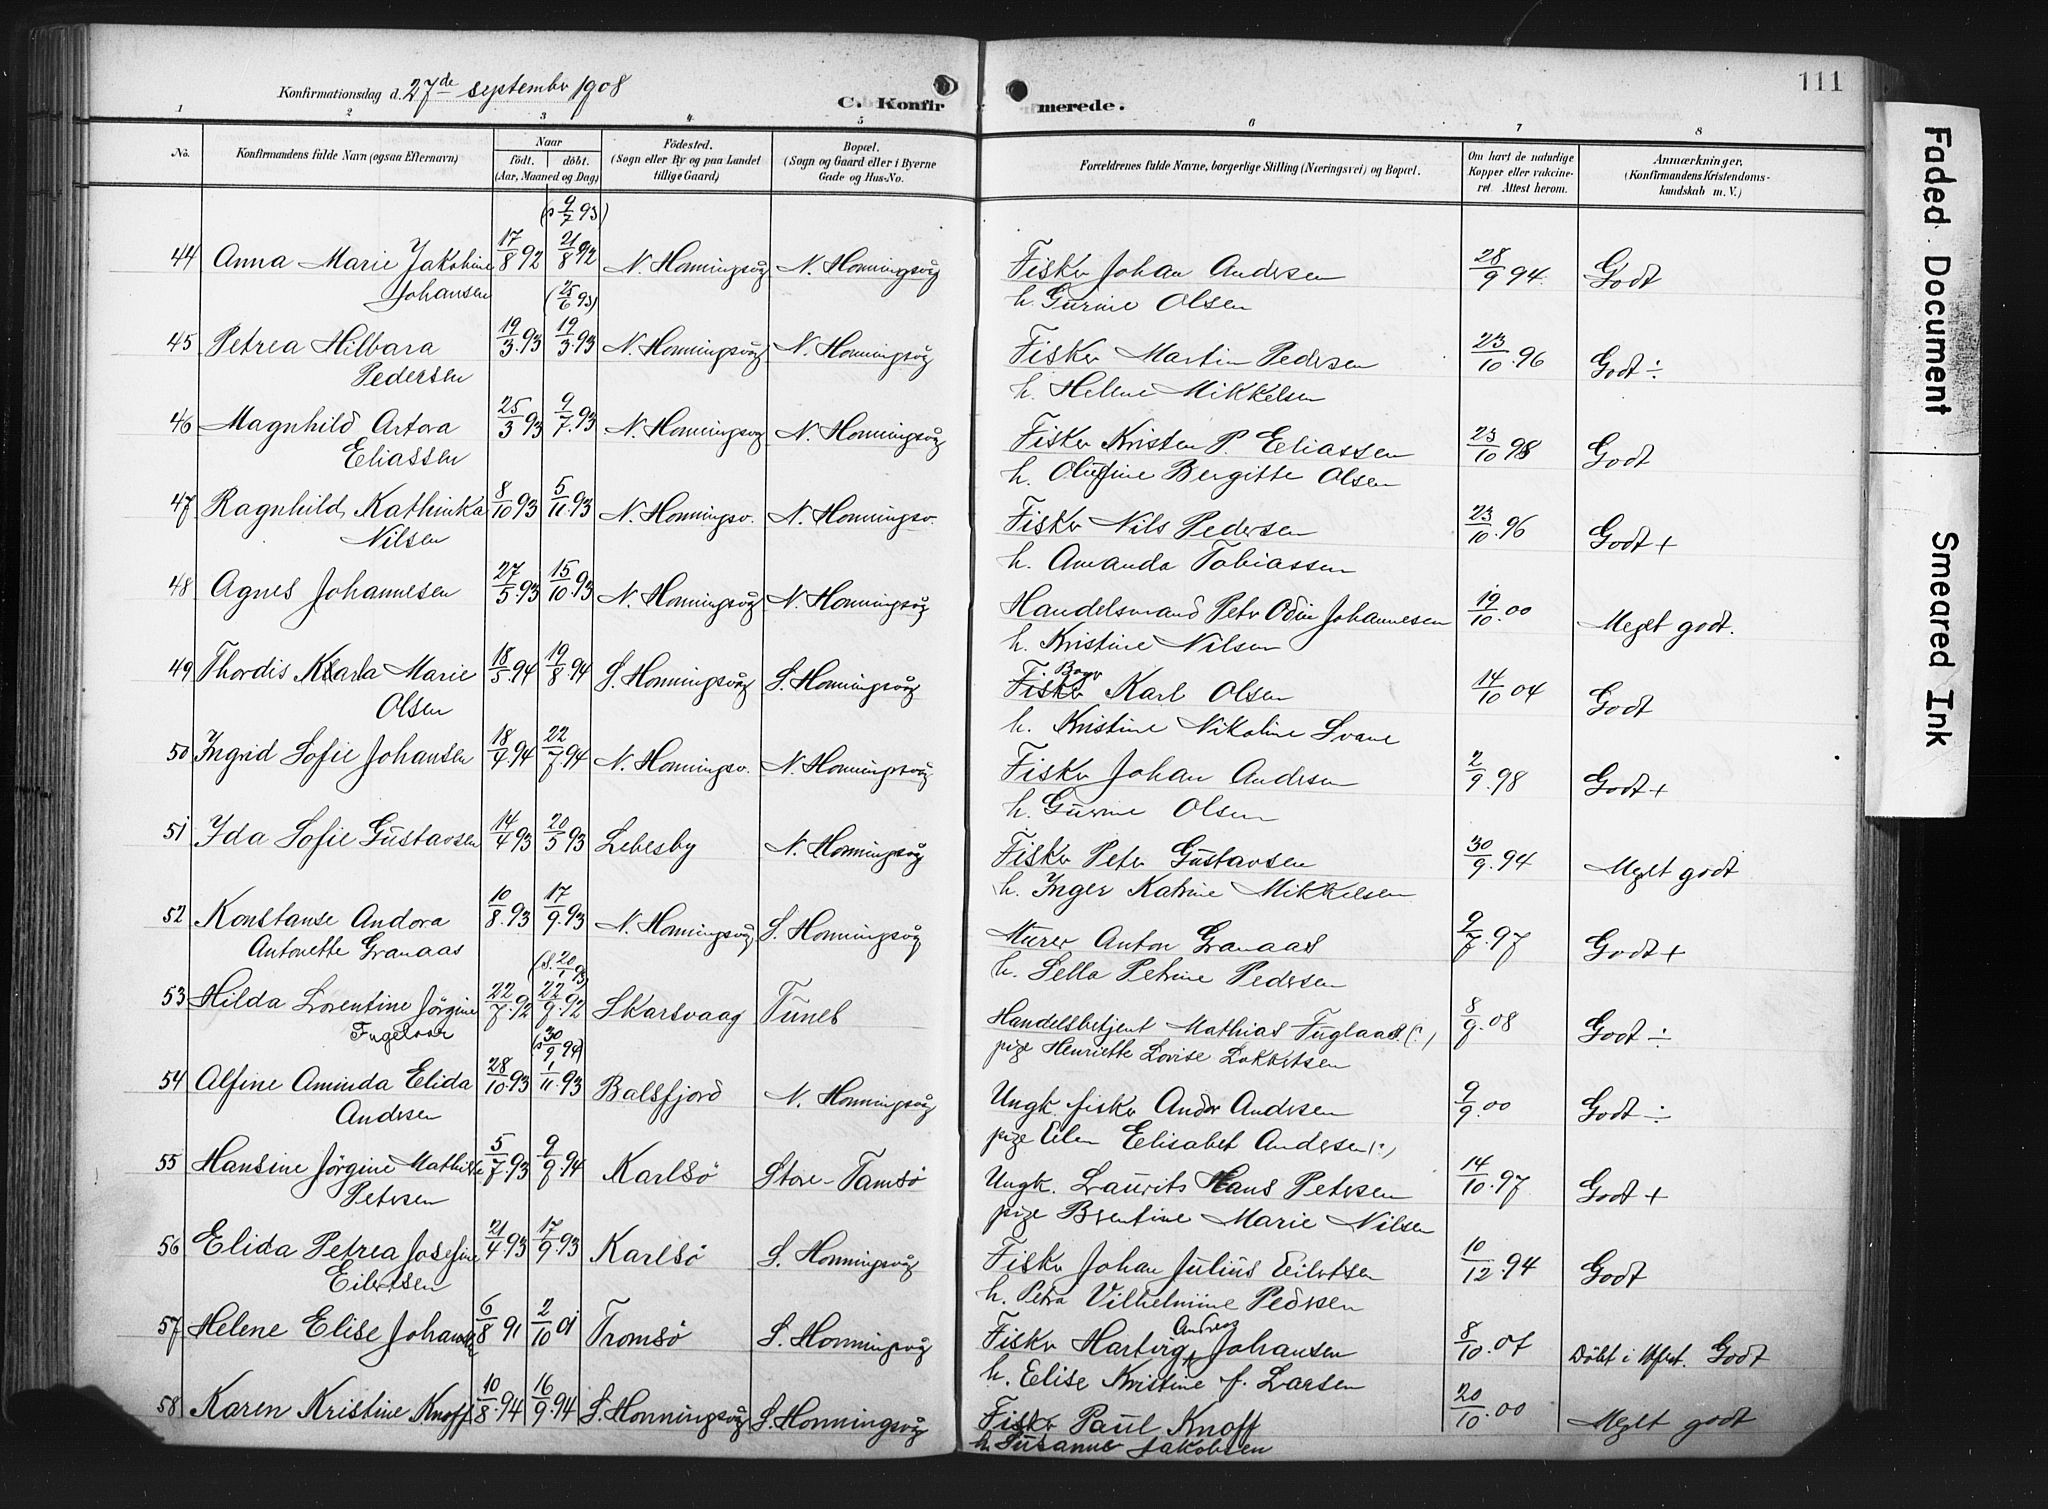 111
Konfirmationsdag d. 27de september 1908
C. Konfirmerede.
1 2 3 4 5 6 7 8
No. Konfirmandens fulde Navn (ogsaa Efternavn) Naar födt. döbt. (Aar, Maaned og Dag) Födested. (Sogn eller By og paa Landet tillige Gaard) Bopæl. (Sogn og Gaard eller i Byerne Gade og Hus-No. Forældrenes fulde Navne, borgerlige Stilling (Næringsvei) og Bopæl. Om havt de naturlige Kopper eller vakcineret. Attest herom. Anmærkninger. (Konfirmandens Kristendomskundskab m. V.)
(s 9/7 93)
44 Anna Marie Jakobine 17/8 92 21/8 92 N. Honningsvåg N. Honningsvåg Fisker Johan Andersen 28/9 94. Godt
Johansen h. Gurine Olsen
(25/6 93)
45 Petrea Hilbara 19/3.93 19/3.93 N. Honningsvåg N. Honningsvåg Fisker Martin Pedersen 23/10.96 Godt ÷
Pedersen h. Helene Mikkelsen
46 Magnhild Artora 25/3 93 9/7.93 N. Honningsvåg N. Honningsvåg Fisker Kristen P. Eliassen 23/10 98 Godt
Eliassen h. Olufine Bergitte Olsen
47 Ragnhild Kathinka 8/10 93 5/11.93 N. Honningsv. N. Honningsv. Fisker Nils Pedersen 23/10.96 Godt +
Nilsen h. Amanda Tobiassen
48 Agnes Johannesen 27/5.93 15/10.93 N. Honningsvåg N. Honningsvåg Handelsmand Petr Odin Johannesen 19/10.00 Meget godt.
h. Kristine Nilsen
49 Thordis Karla Marie 18/5.94 19/8.94 S. Honningsvåg S. Honningsvåg Fisker Karl Olsen 14/10 04 Godt
Olsen h. Kristine Nikoline Svane
50 Ingrid Sofie Johansen 18/4.94 22/7.94 N. Honningsv. N. Honningsvåg Fisker Johan Andersen 2/9.98 Godt +
h. Gurine Olsen
51 Ida Sofie Gustavsen 14/4 93 20/5 93 Lebesby N. Honningsvåg Fisker Peter Gustavsen 30/9.94 Meget godt
h. Inger Katrine Mikkelsen
52 Konstanse Andora 10/8.93 17/9.93 N. Honningsvåg S. Honningsvåg Murer Anton Granaas 9/7.97 Godt +
Antonette Granaas h. Sella Petrine Pedersen
(s. 20/1 93)
53 Hilda Lorentine Jörgine 22/7.92 22/9.92 Skarsvaag Tunes Handelsbetjent Mathias Fuglaas (:, 8/9.08 Godt ÷
pige Henriette Lovise Lokkertsen
(s 30/9 94)
54 Alfine Aminda Elida 28/10.93 1/11.93 Balsfjord N. Honningsvåg Ungk. fisker Andor Andersen 9/9.00 Godt ÷
Andersen pige Elen Elisabet Andersen (:,
55 Hansine Jörgine Mathilde 5/7.93 9/9.94 Karlsö Store-Tamsö Ungk. Laurits Hans Petersen 14/10.97 Godt +
Petersen pige Berntine Marie Nilsen
56 Elida Petrea Josefine 21/4 93 17/9.93 Karlsö S. Honningsvåg Fisker Johan Julius Eilertsen 10/12.94 Godt
Eilertsen h. Petra Vilhelmine Pedersen
57 Helene Elise Johansen 6/8 91 2/10 01 Tromsö S. Honningsvåg Fisker Hartvig Andreas Johansen 8/10.07 Döbt i Vefst. Godt
h. Elise Kristine f. Larsen
58 Karen Kristine Knoff 10/8.94 16/9.94 S. Honningsvåg S. Honningsvåg Fisker Paul Knoff 20/10.00 Meget godt
h. Susanne Jakobsen
Faded Document
Smeared Ink